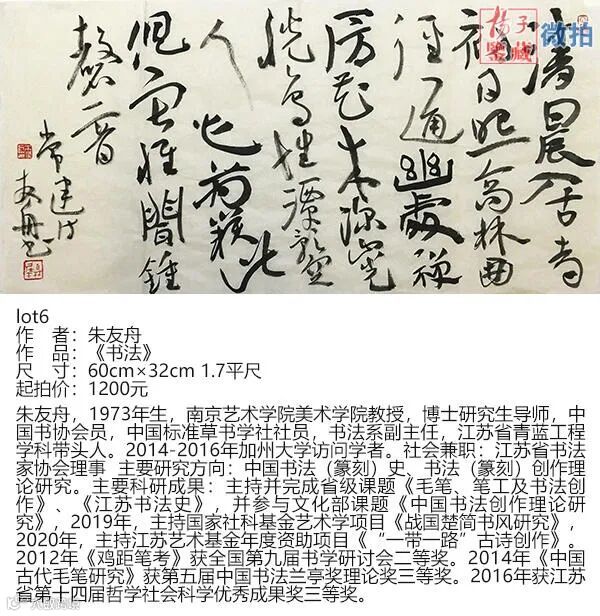 揚子
鑒藏
微拍
清晨入古寺
初日照高林曲
徑通幽處禪
房花木深山光
悦鳥性潭影空
人心萬籟此
俱寂惟聞鍾
磬音
常建詩
友舟
lot6
作　者：朱友舟
作　品：《书法》
尺　寸：60cm×32cm 1.7平尺
起拍价：1200元
朱友舟，1973年生，南京艺术学院美术学院教授，博士研究生导师，中
国书协会员，中国标准草书学社社员，书法系副主任，江苏省青蓝工程
学科带头人。2014-2016年加州大学访问学者。社会兼职：江苏省书法
家协会理事 主要研究方向：中国书法（篆刻）史、书法（篆刻）创作理
论研究。主要科研成果：主持并完成省级课题《毛笔、笔工及书法创
作》、《江苏书法史》，并参与文化部课题《中国书法创作理论研
究》，2019年，主持国家社科基金艺术学项目《战国楚简书风研究》，
2020年，主持江苏艺术基金年度资助项目《“一带一路”古诗创作》。
2012年《鸡距笔考》获全国第九届书学研讨会二等奖。2014年《中国
古代毛笔研究》获第五届中国书法兰亭奖理论奖三等奖。2016年获江苏
省第十四届哲学社会科学优秀成果奖三等奖。